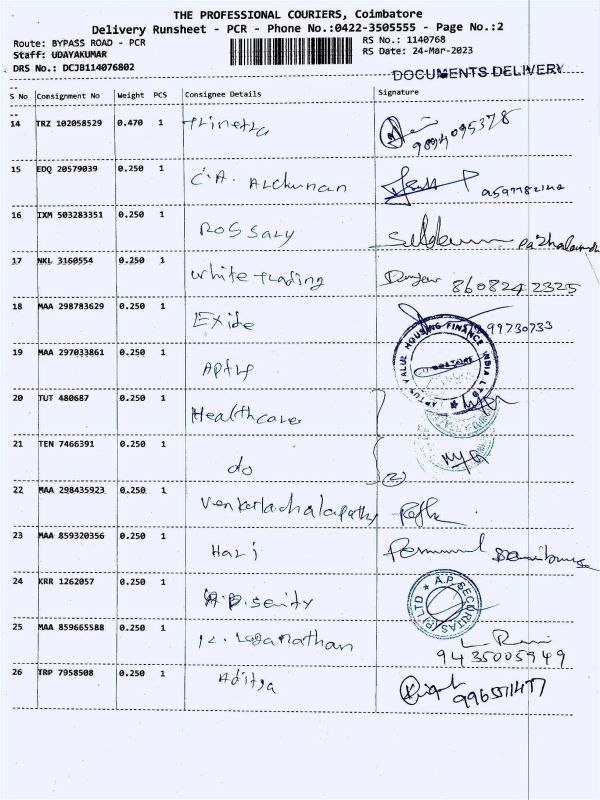 THE PROFESSIONAL COURIERS, Coimbatore
Delivery Runsheet - PCR - Phone No.:0422-3505555 - Page No.:2
Route: BYPASS ROAD - PCR
RS No.: 1140768
Staff: UDAYAKUMAR
RS Date: 24-Mar-2023
DRS No.: DCJB114076802
DOCUMENTS DELIVERY
S No Consignment No Weight PCS Consignee Details Signature
14 TRZ 102058529 0.470 1 Trinetra
9894095378
15 EDQ 20579039 0.250 1 C.A. Alckunan
16 IXM 503283351 0.250 1 Rossary
17 NKL 3160554 0.250 1 White trading 8608242325
18 MAA 298783629 0.250 1 Exide 99730733
19 MAA 297033861 0.250 1
APTUS VALUE HOUSING FINANCE INDIA LTD
20 TUT 480687 0.250 1 Healthcare
21 TEN 7466391 0.250 1 do (2)
22 MAA 298435923 0.250 1 Venkatachalapathy
23 MAA 859320356 0.250 1 Hari
24 KRR 1262057 0.250 1
A.P. SECURITAS (P) LTD
25 MAA 859665588 0.250 1 K. Loganathan
9435005949
26 TRP 7958508 0.250 1 Aditya